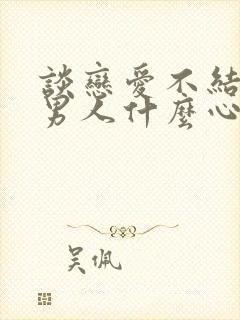 談戀愛不結
男人什麼心
吳佩